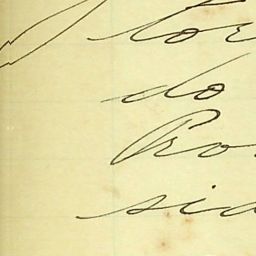 tor
do
Pro
sid